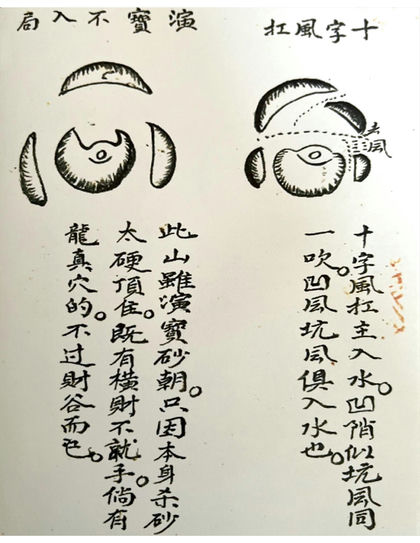 十字風扛
去風
十字風扛主入水。凹陗似坑風同
一吹。凹風坑風俱入水也。
演寶不入局
此山雖演寶砂朝。只因本身杀砂
太硬頂住。既有橫財不就手。倘有
龍真穴的。不过財谷而已。